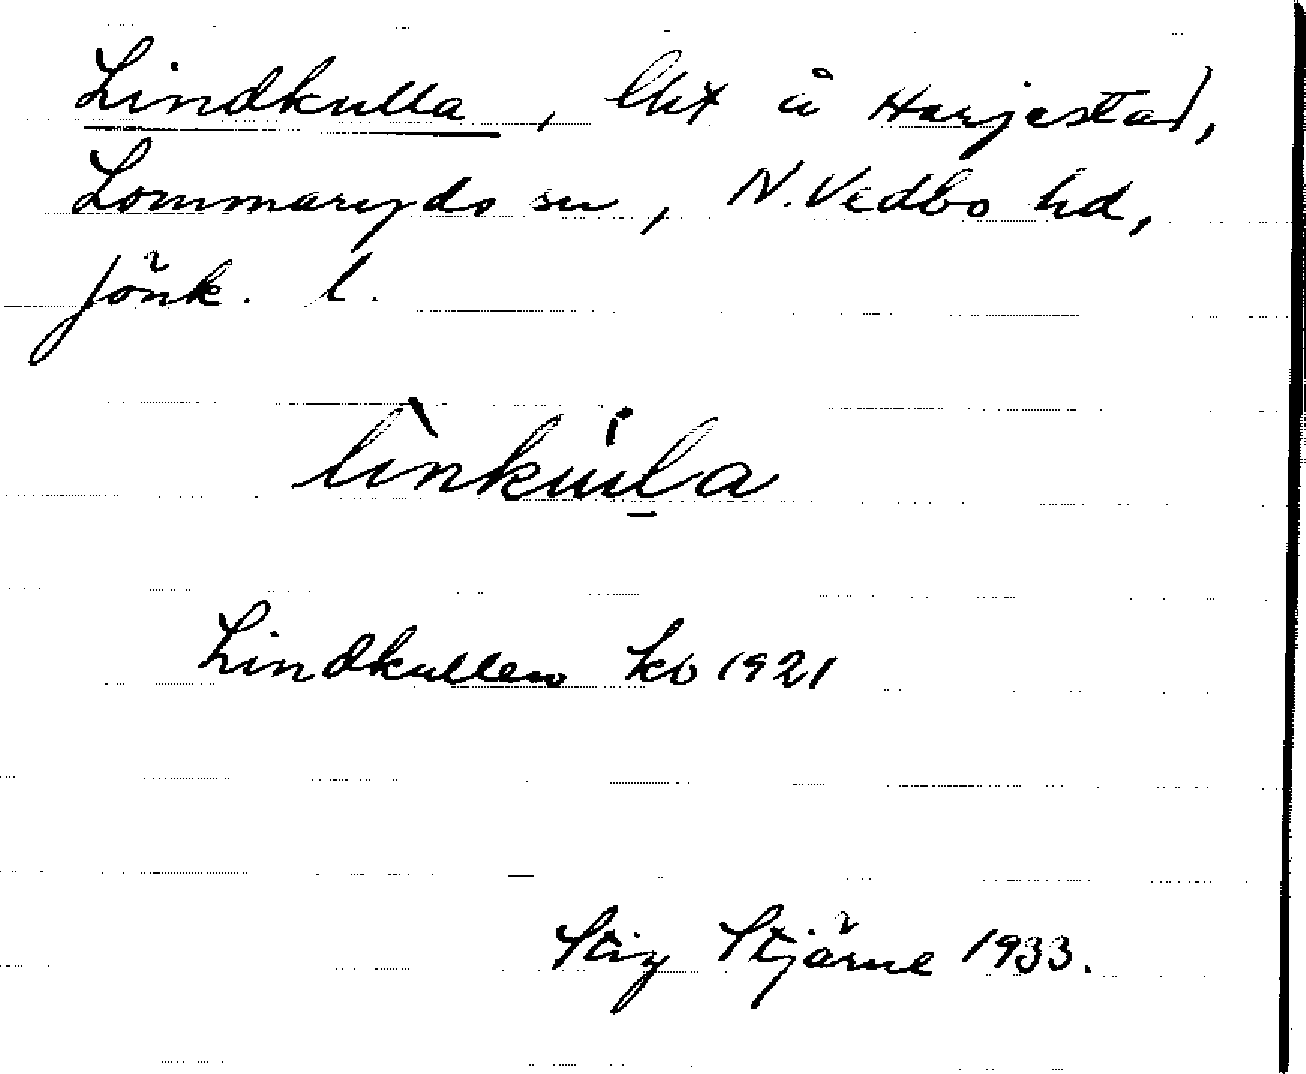 Lindkulla, lht å Harjestad,
Lommaryds sn, N. Vedbo hd,
Jönk. l.
linkula
Lindkullen kb 1921
Stig Stjärne 1933.